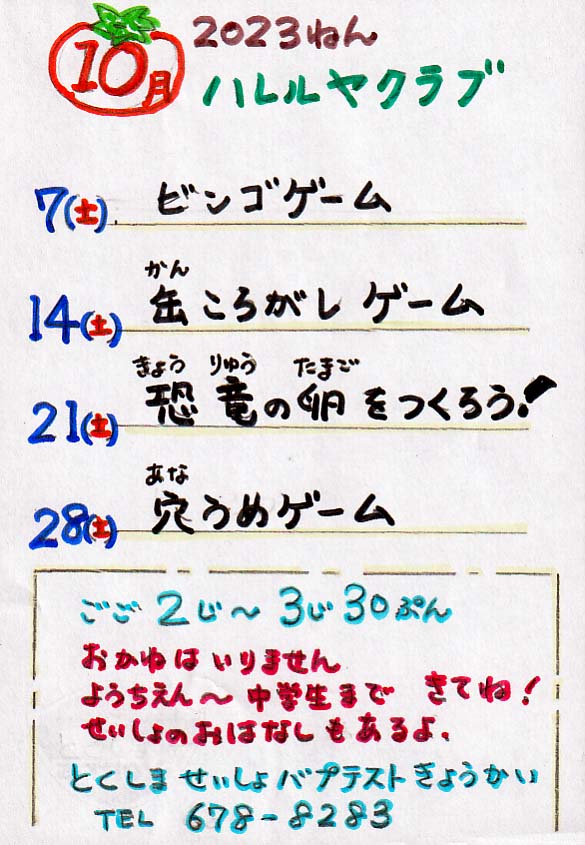 10月
2023ねん
ハレルヤクラブ
7(土) ビンゴゲーム
かん
14(土) 缶ころがし ゲーム
きょう りゅう たまご
21(土) 恐竜の卵をつくろう!
あな
28(土) 穴うめゲーム
ごご 2じ〜3じ30ぷん
おかねはいりません
ようちえん〜中学生まで きてね!
せいしょのおはなしもあるよ.
とくしま せいしょバプテストきょうかい
TEL 678-8283